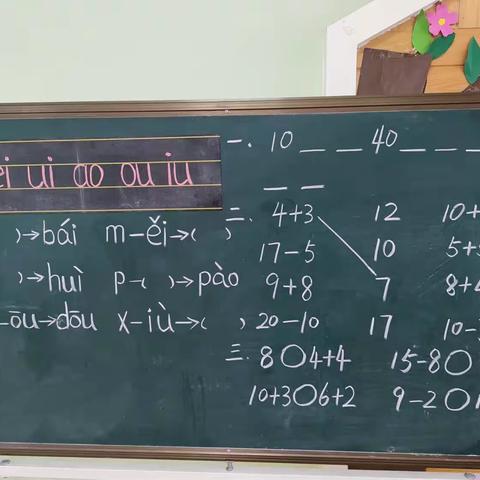 ei ui ao ou iu
)→bái m-ěi→( )
)→huì p-( )→pào
-ōu→dōu x-iù→( )
一. 10 _ _ 40 _ _ _
_ _
二. 4+3 12 10+
17-5 10 5+
9+8 7 8+
20-10 17 10-
三. 8○4+4 15-8○
10+3○6+2 9-2○1